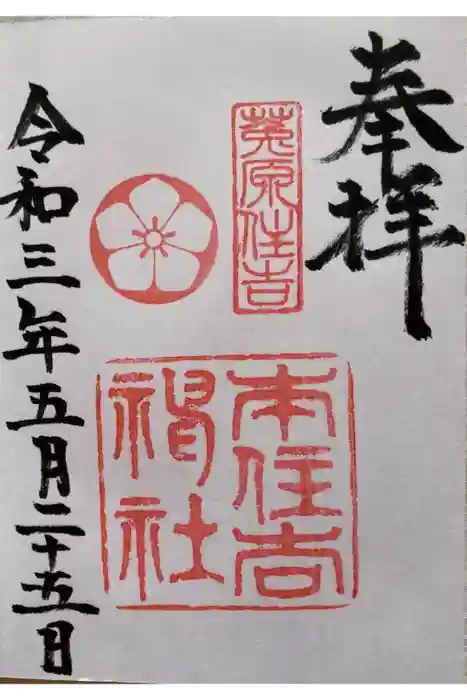 奉拝
莵原住吉
本住吉
神社
令和三年五月二十五日